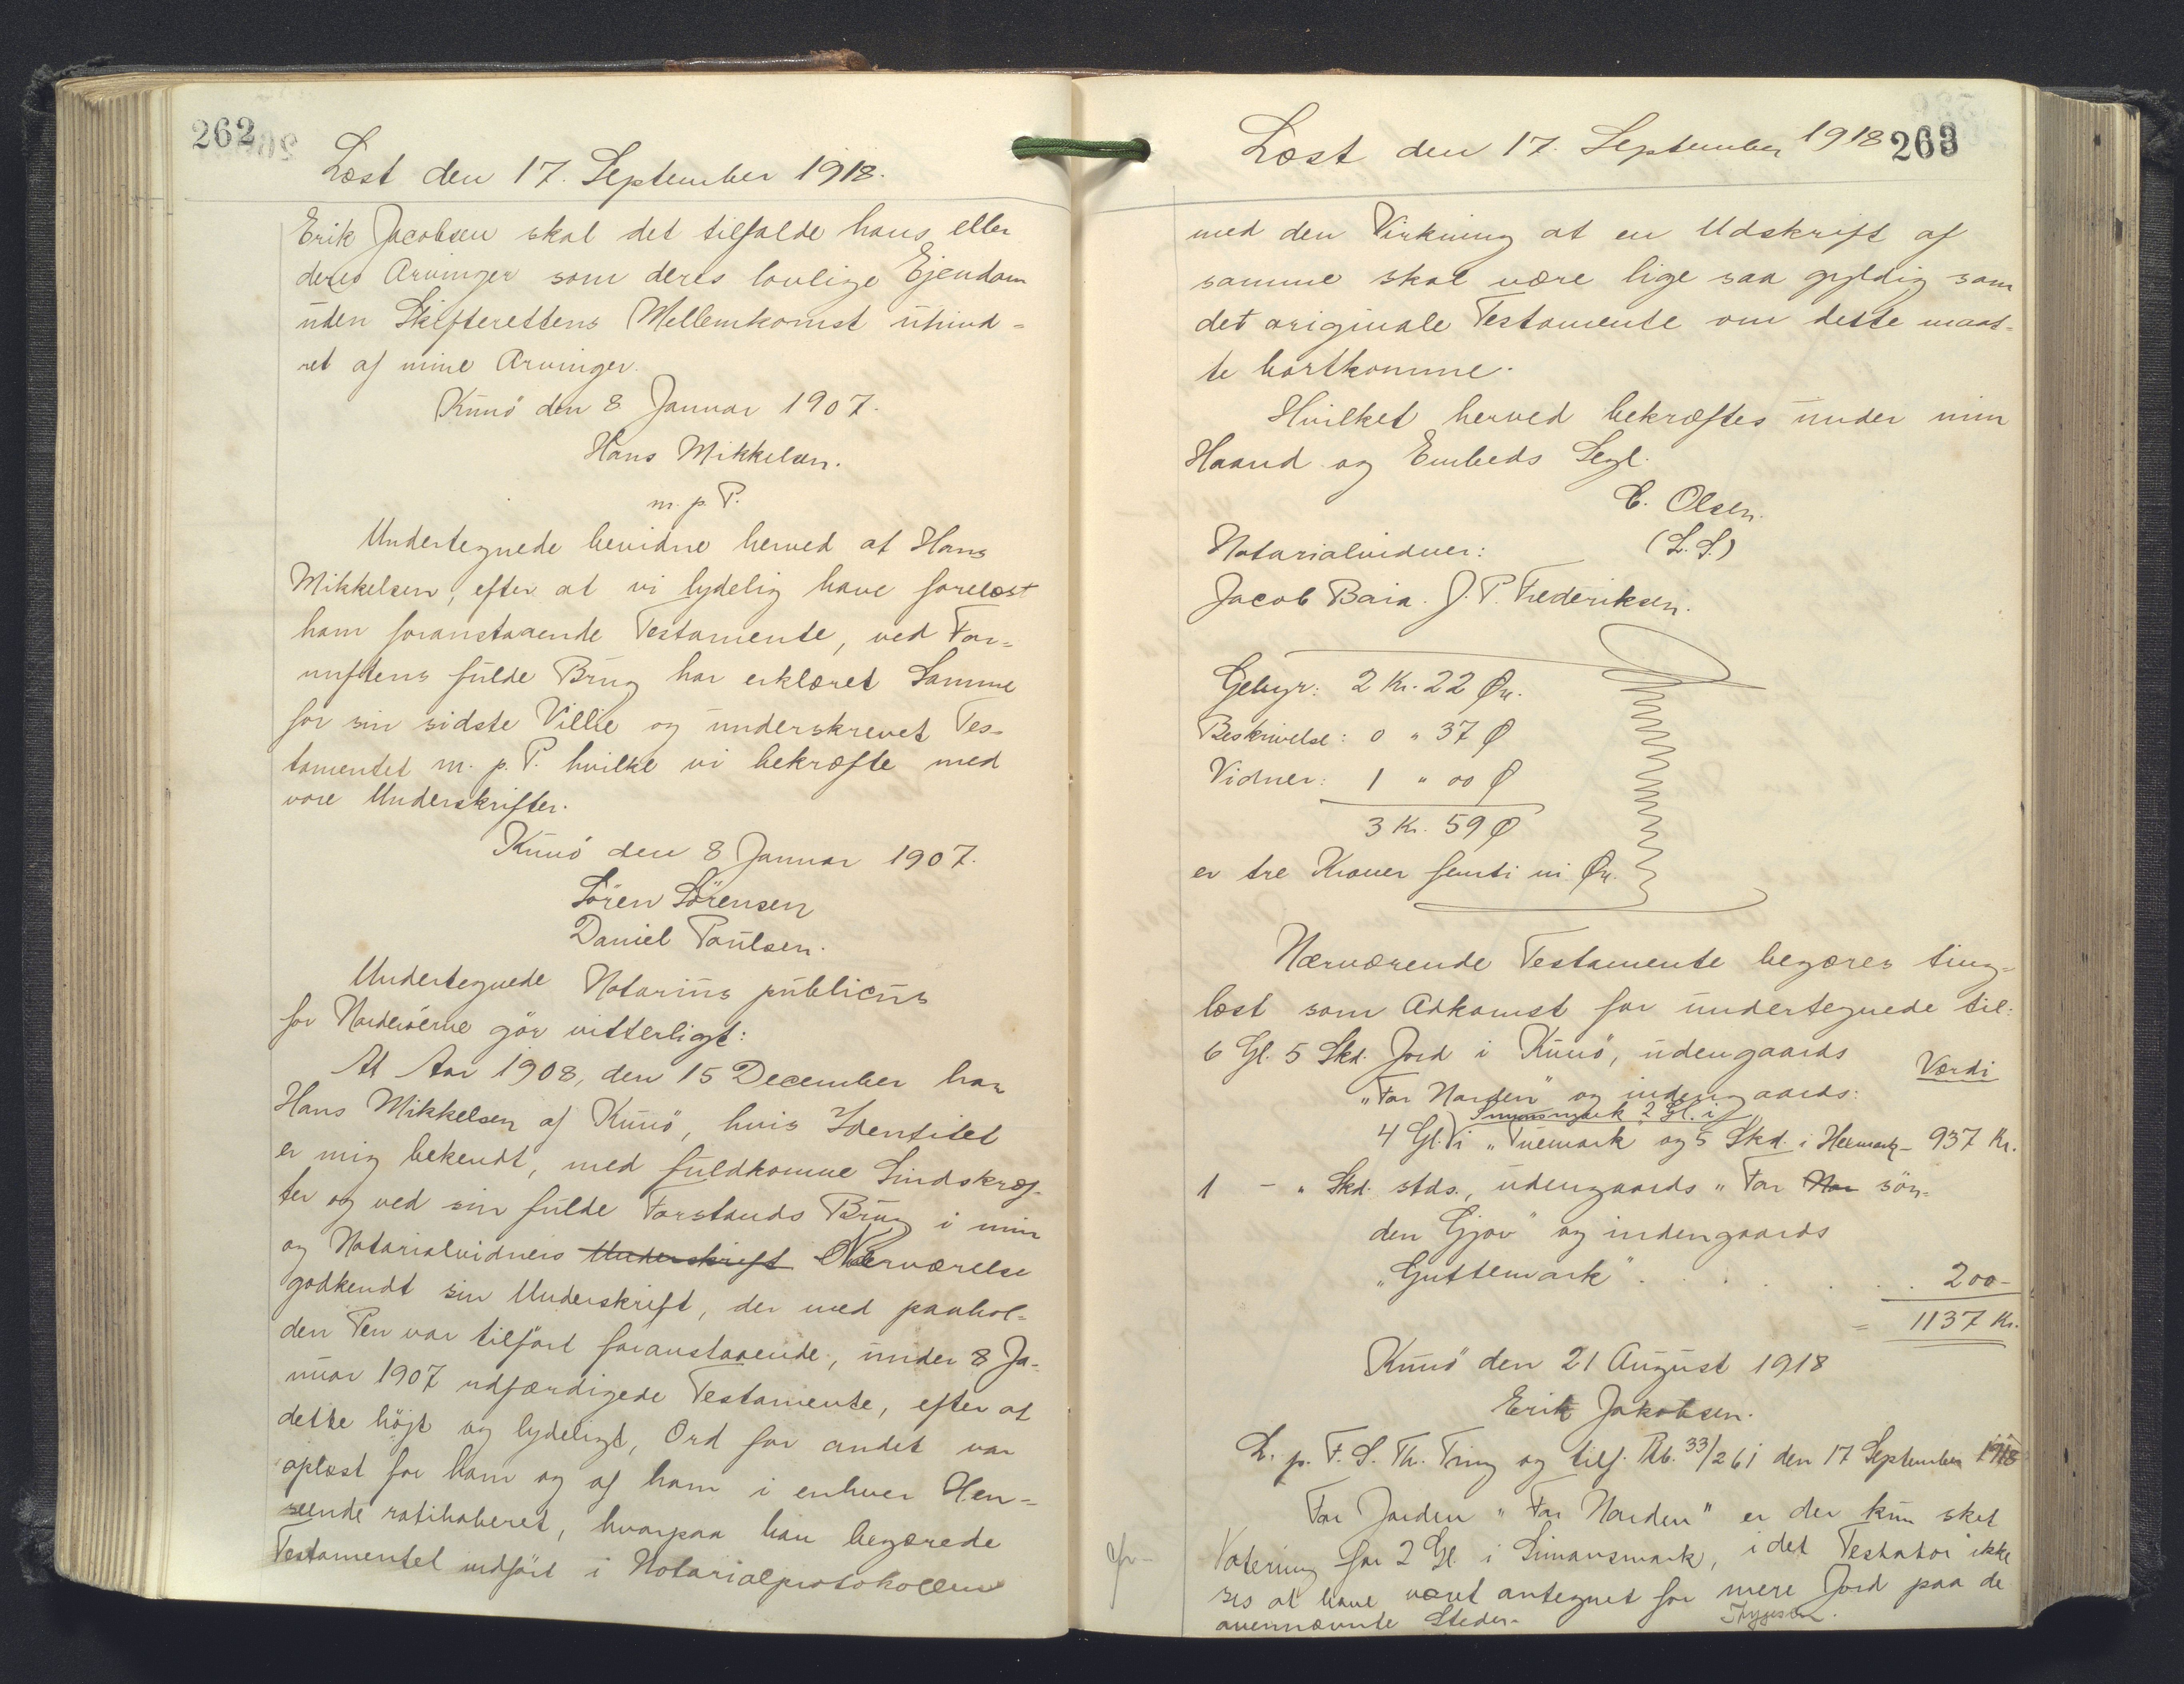 262
Læst den 17. September 1918.
Erik Jacobsen skal det tilfalde hans eller
deres Arvinger som deres lovlige Ejendom
uden Skifterettens Mellemkomst uhind-
ret af mine Arvinger.
Kunö den 8. Januar 1907.
Hans Mikkelsen.
m. p. P.
Undertegnede bevidne herved at Hans
Mikkelsen, efter at vi lydelig have forelæst
ham foranstaaende Testamente, ved For-
nuftens fulde Brug har erklæret Samme
for sin sidste Villie og underskrevet Tes-
tamentet m. p. P. hvilke vi bekræfte med
vore Underskrifter.
Kunö den 8 Januar 1907.
Sören Sörensen
Daniel Poulsen.
Undertegnede Notarius publicus
for Norderöerne gör vitterligt:
At Aar 1908, den 15 December har
Hans Mikkelsen af Kunö, hvis Identitet
er mig bekendt, med fuldkomne Sindskræf-
ter og ved sin fulde Forstands Brug i min
og Notarialvidners Underskrift Nærværelse
godkendt sin Underskrift, der med paahol-
den Pen var tilfört foranstaaende, under 8 Ja-
nuar 1907 udfærdigede Testamente, efter at
dette höjt og lydeligt, Ord for andet var
oplæst for ham og af ham i enhver Hen-
seende ratihaberet, hvorpaa han begærede
Testamentet indfört i Notarialprotokollen
263
Læst den 17. September 1918
med den Virkning at en Udskrift af
samme skal være lige saa gyldig som
det originale Testamente om dette maat-
te bortkomme.
Hvilket herved bekræftes under min
Haand og Embeds Segl.
C. Olsen.
Notarialvidner: (L. S.)
Jacob Baia. J. P. Frederiksen.
Gebyr: 2 Kr. 22 Ør.
Beskrivelse: 0 " 37 Ø
Vidner: 1 " 00 Ø
3 Kr. 59 Ø
er tre Kroner femti ni Ør.
Nærværende Testamente begæres ting-
læst som Adkomst for undertegnede til:
6 Gl. 5 Skd. Jord i Kunö, udengaards
Værdi
"For Norden" og indengaards:
Simonsmark 2 Gl. i
4 Gl. i "Tuemark og 5 Skd. i Heimark - 937 Kr.
1 - " Skd. stds., udengaards "For Nor sön-
den Gjov" og indengaards
"Guttemark" . . . . . . 200 -
= 1137 Kr.
Kunö den 21 August 1918
Erik Jakobsen.
L. p. F. S. Th. Ting og tilf. Pb. 33/261 den 17 September 1918
For Jorden "For Norden" er der kun sket
Notering for 2 Gl. i Simonsmark, i det Testator ikke
ses at have været antegnet for mere Jord paa de
ovennævnte Steder.